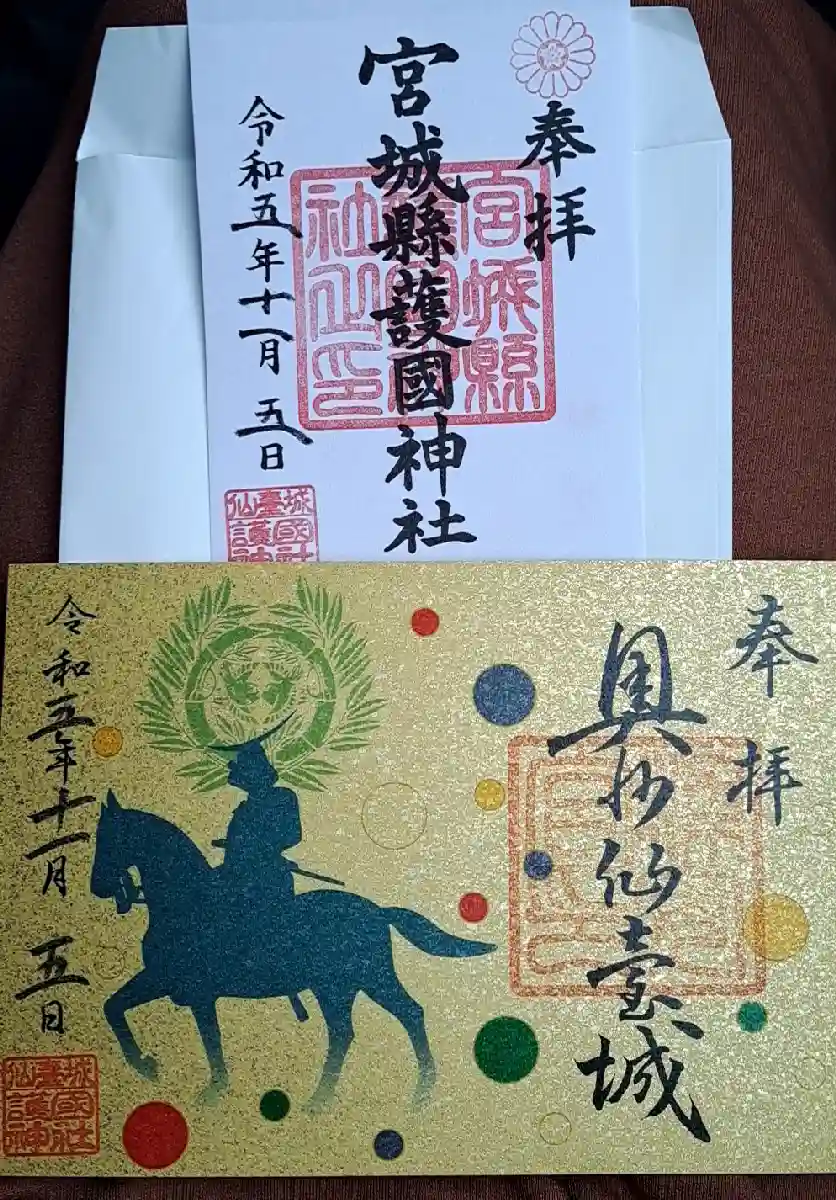 奉拝
宮城縣護國神社
令和五年十一月五日
宮城縣
社之印
仙臺城
護國神社
奉拝
奥州仙臺城
令和五年十一月五日
仙臺城
護國神社